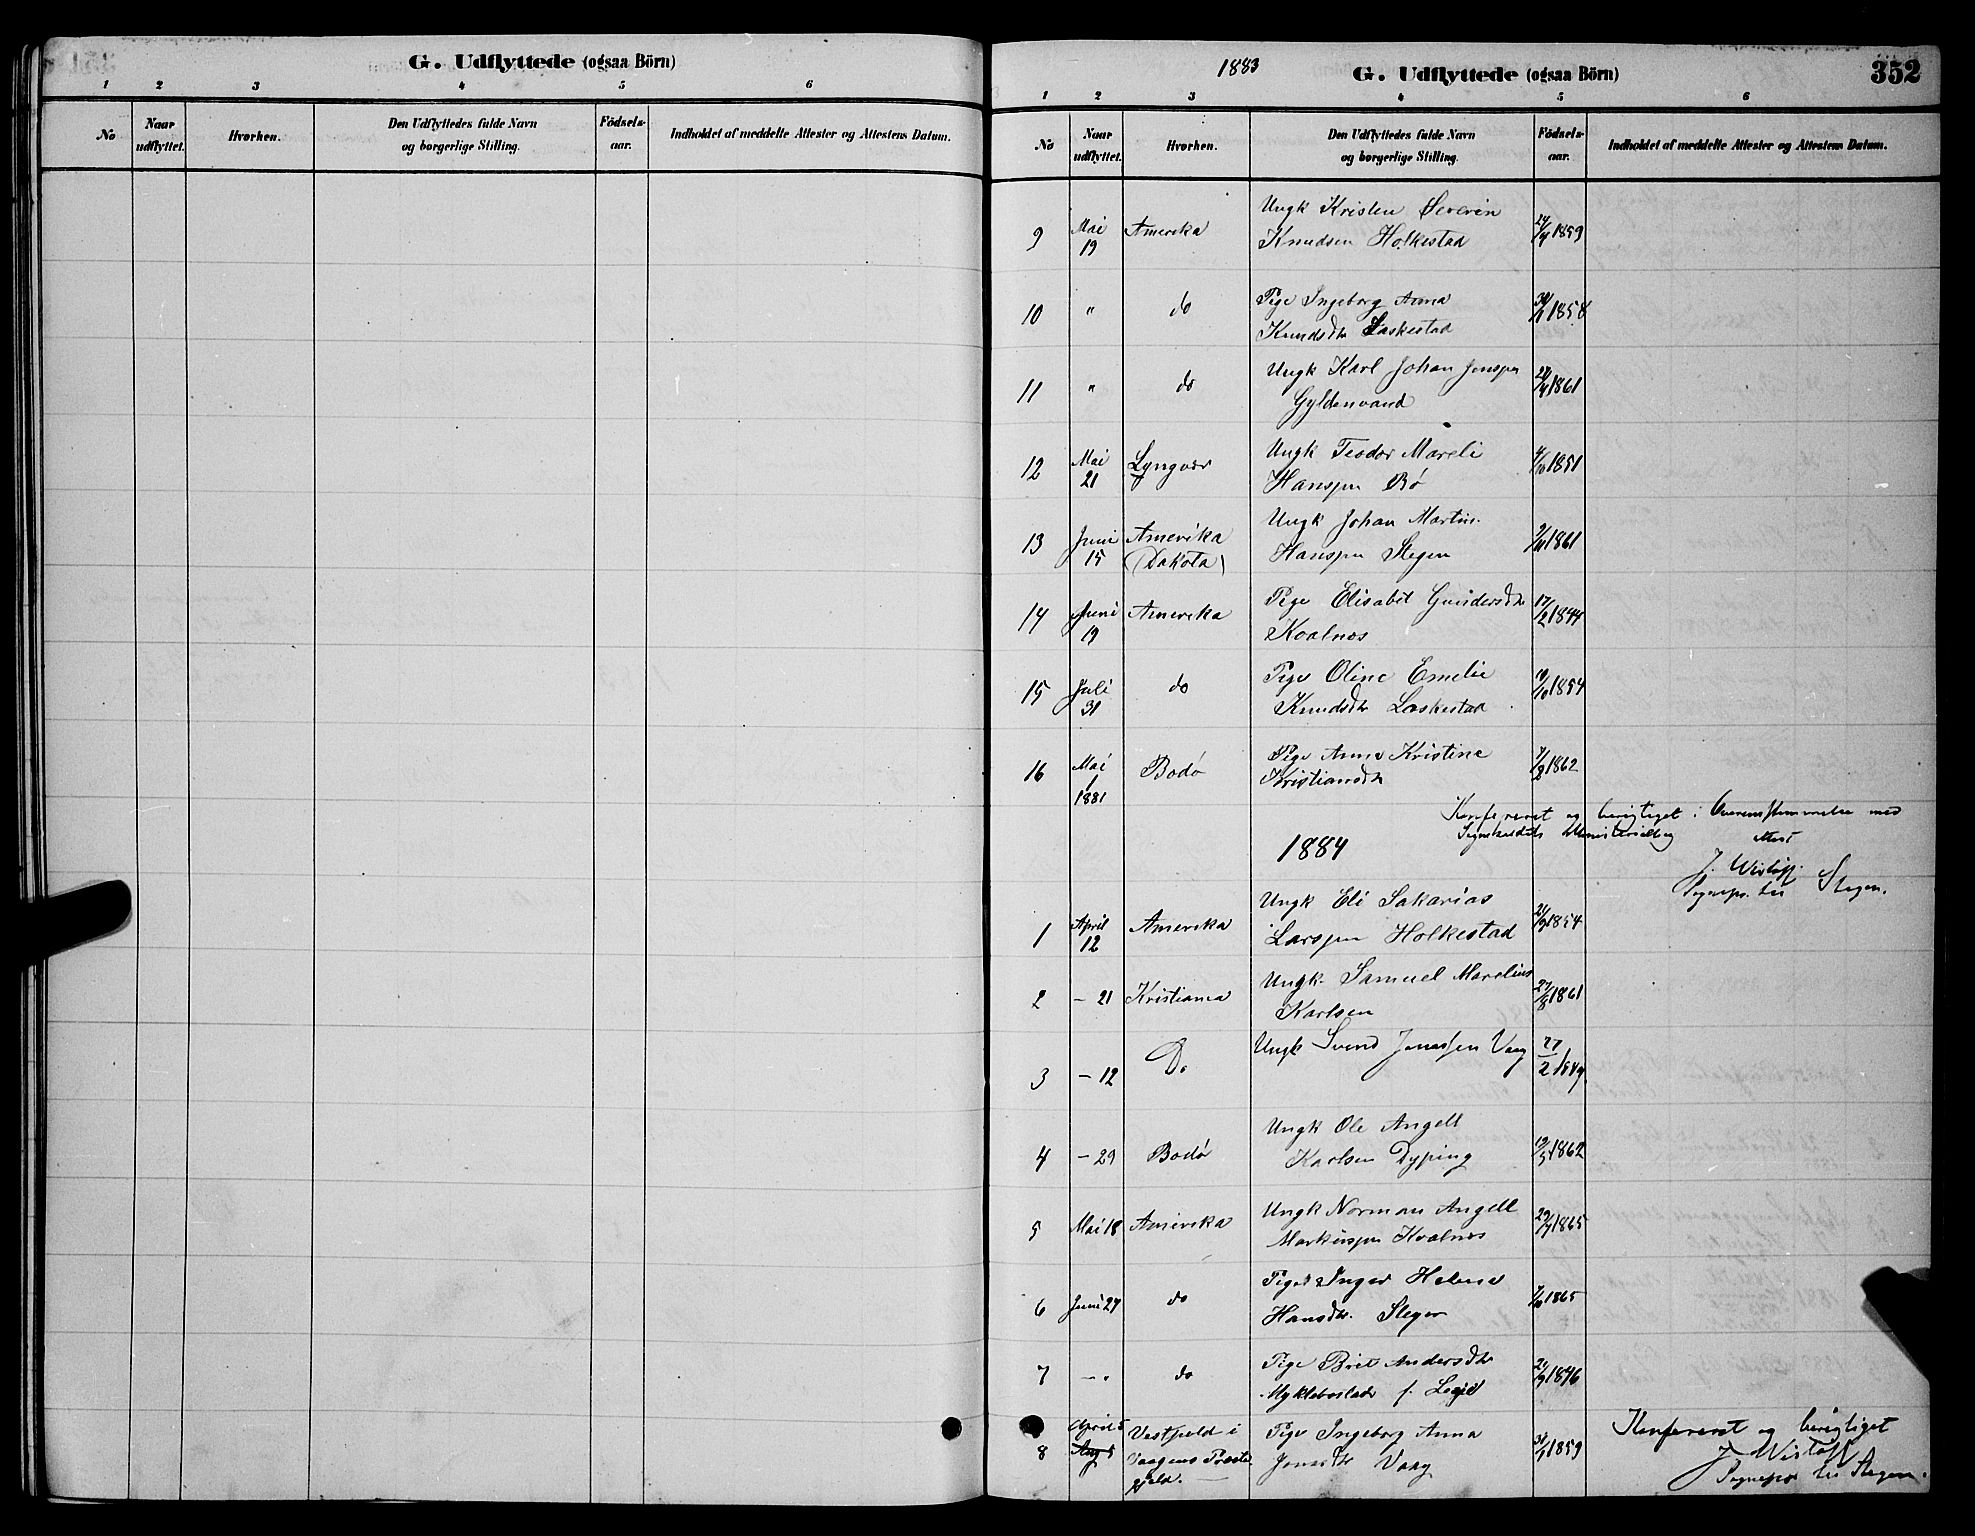 G. Udflyttede (ogsaa Börn)
1 2 3 4 5 6
No Naar udflyttet. Hvorhen. Den Udflyttedes fulde Navn og borgerlige Stilling. Födsels-aar. Indholdet af meddelte Attester og Attestens Datum.
1883 G. Udflyttede (ogsaa Börn) 352
1 2 3 4 5 6
No Naar udflyttet. Hvorhen. Den Udflyttedes fulde Navn og borgerlige Stilling. Födsels-aar. Indholdet af meddelte Attester og Attestens Datum.
Ungk Kristen Severin
9 Mai 19 Amerika Knudsen Holkestad 1859
Pige Ingeborg Anna
10 " do Knudsdtr Laskestad 1858
Ungk Karl Johan Jenssen
11 " do Gyldenvand 1861
Ungk Teodor Mareli
12 Mai 21 Lyngvær Hanssen Bö 1851
Ungk Johan Martin
13 Juni 15 Amerika (Dakota) Hanssen Stegen 1861
Pige Elisabet Gundersdtr
14 Juni 19 Amerika Kvalnes 17/2 1844
Pige Oline Emelie
15 Juli 31 do Knudsdtr Laskestad 19/10 1854
Pige Anne Kristine
16 Mai 1 1881 Bodö Kristiansdtr 1862
Konfereret og berigtiget i Overensstemmelse med
1884
J. Wisløff
Sognepr. til Stegen.
Ungk Eli Sakarias
1 April 12 Amerika Larssen Holkestad 1854
Ungk. Samuel Marelius
2 – 21 Kristiania Karlsen 27/8 1861
3 – 12 Do Ungk Svend Jonassen Vaag 27/2 1849
Ungk Ole Angell
4 – 29 Bodö Karlsen Dyping 19/5 1862
Ungk Norman Angell
5 Mai 18 Amerika Markussen Kvalnes 1865
Pige Inger Helene
6 Juni 27 do Hansdtr. Stegen 1865
Pige Brit Andersdtr
7 – " do Myklebostad f. 1846
8 April 5 Aug 5 Vestfjeld i Vaagens Præstegjeld. Pige Ingeborg Anna Jonasdtr Vaag 1859
Konfereret og berigtiget
J. Wisløff
Sognepr til Stegen.